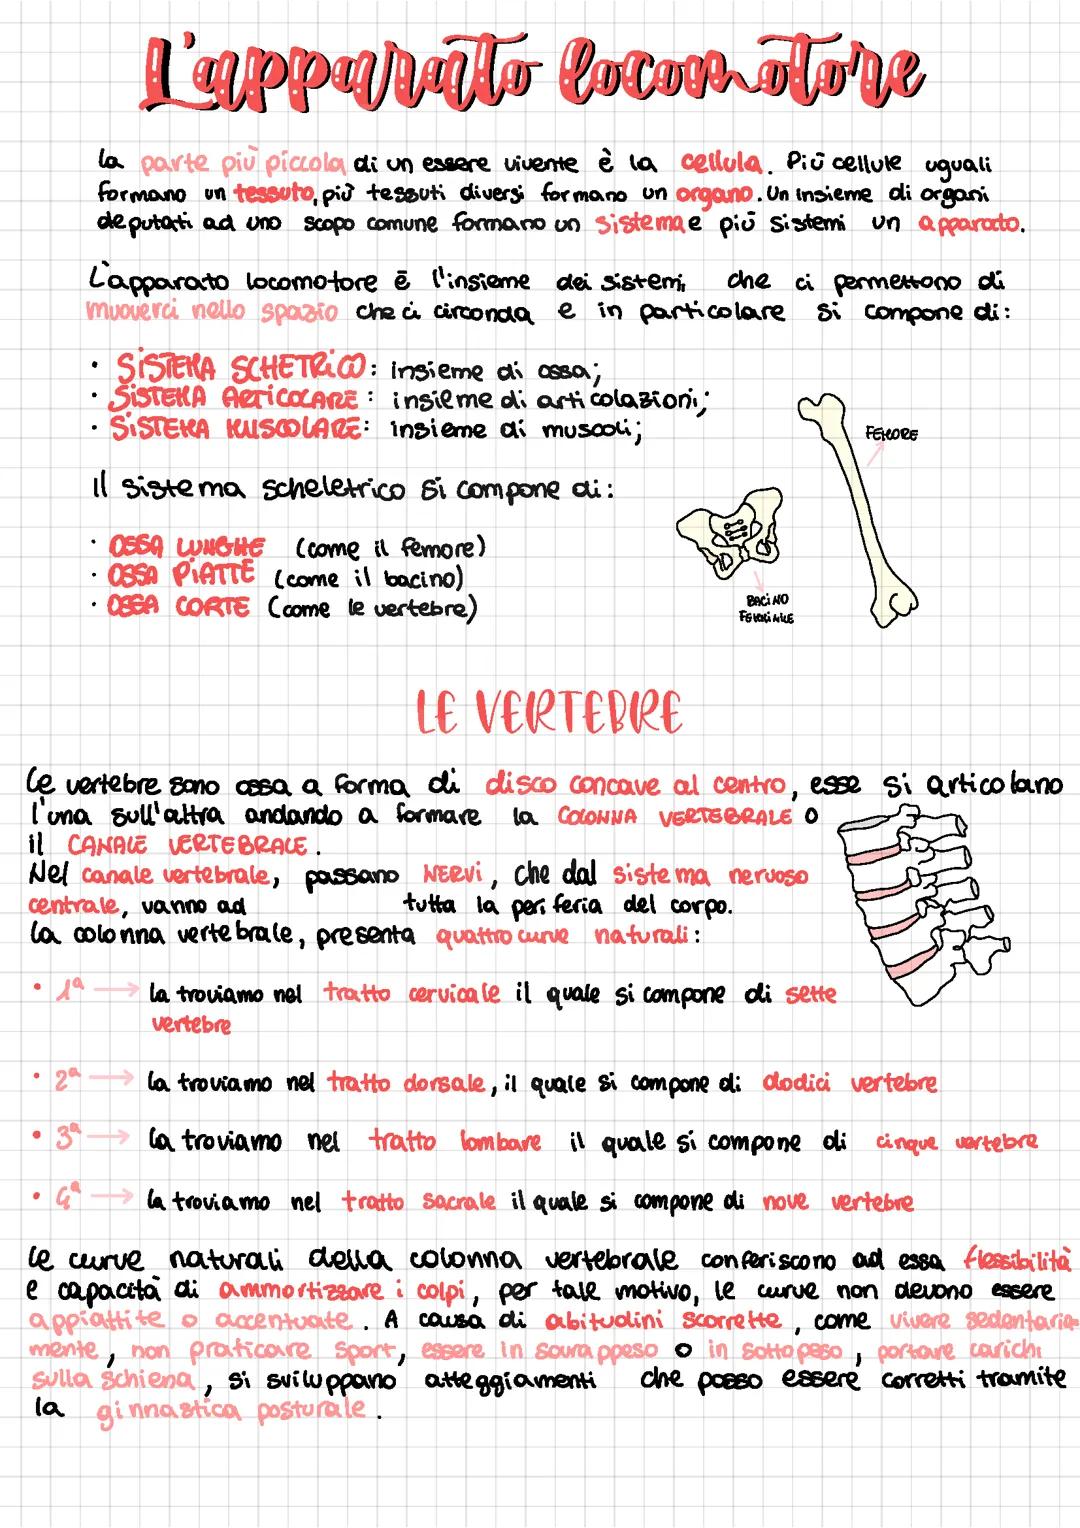 L'apparato locomotore
la parte più piccola di un essere vivente è la cellula. Più cellule uguali
formano un tessuto, più tessuti diversi formano un organo. Un insieme di organi
deputati ad uno scopo comune formano un sistema e più sistemi un apparato.
L'apparato locomotore è l'insieme dei sistemi, che ci permettono di
muoverci nello spazio che ci circonda e in particolare si compone di:
· SISTEMA SCHETRICO: insieme di ossa;
· SISTEMA ARTICOLARE: insieme di articolazioni;
· SISTEMA MUSCOLARE: insieme di muscoli;
FEMORE
Il sistema scheletrico si compone di:
· OSSA LUNGHE (come il femore)
· OSSA PIATTE (come il bacino)
· OSSA CORTE (come le vertebre)
BACINO
FEMMINILE
LE VERTEBRE
Le vertebre sono ossa a forma di disco concave al centro, esse si articolano
l'una sull'altra andando a formare la COLONNA VERTEBRALE o
il CANALE VERTEBRALE.
Nel canale vertebrale, passano NERVI, che dal sistema nervoso
centrale, vanno ad tutta la periferia del corpo.
La colonna vertebrale, presenta quattro curve naturali:
· 1ª → la troviamo nel tratto cervicale il quale si compone di sette
vertebre
· 2ª → la troviamo nel tratto dorsale, il quale si compone di dodici vertebre
· 3ª → la troviamo nel tratto lombare il quale si compone di cinque vertebre
· 4ª → la troviamo nel tratto sacrale il quale si compone di nove vertebre
le curve naturali della colonna vertebrale conferiscono ad essa flessibilità
e capacità di ammortizzare i colpi, per tale motivo, le curve non devono essere
appiattite o accentuate. A causa di abitudini scorrette, come vivere sedentaria-
mente, non praticare sport, essere in sovrappeso o in sottopeso, portare carichi
sulla schiena, si sviluppano atteggiamenti che posso essere corretti tramite
la ginnastica posturale.